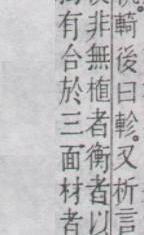 輢後曰軫。又析言
非無植者衡者以
有合於三面材者